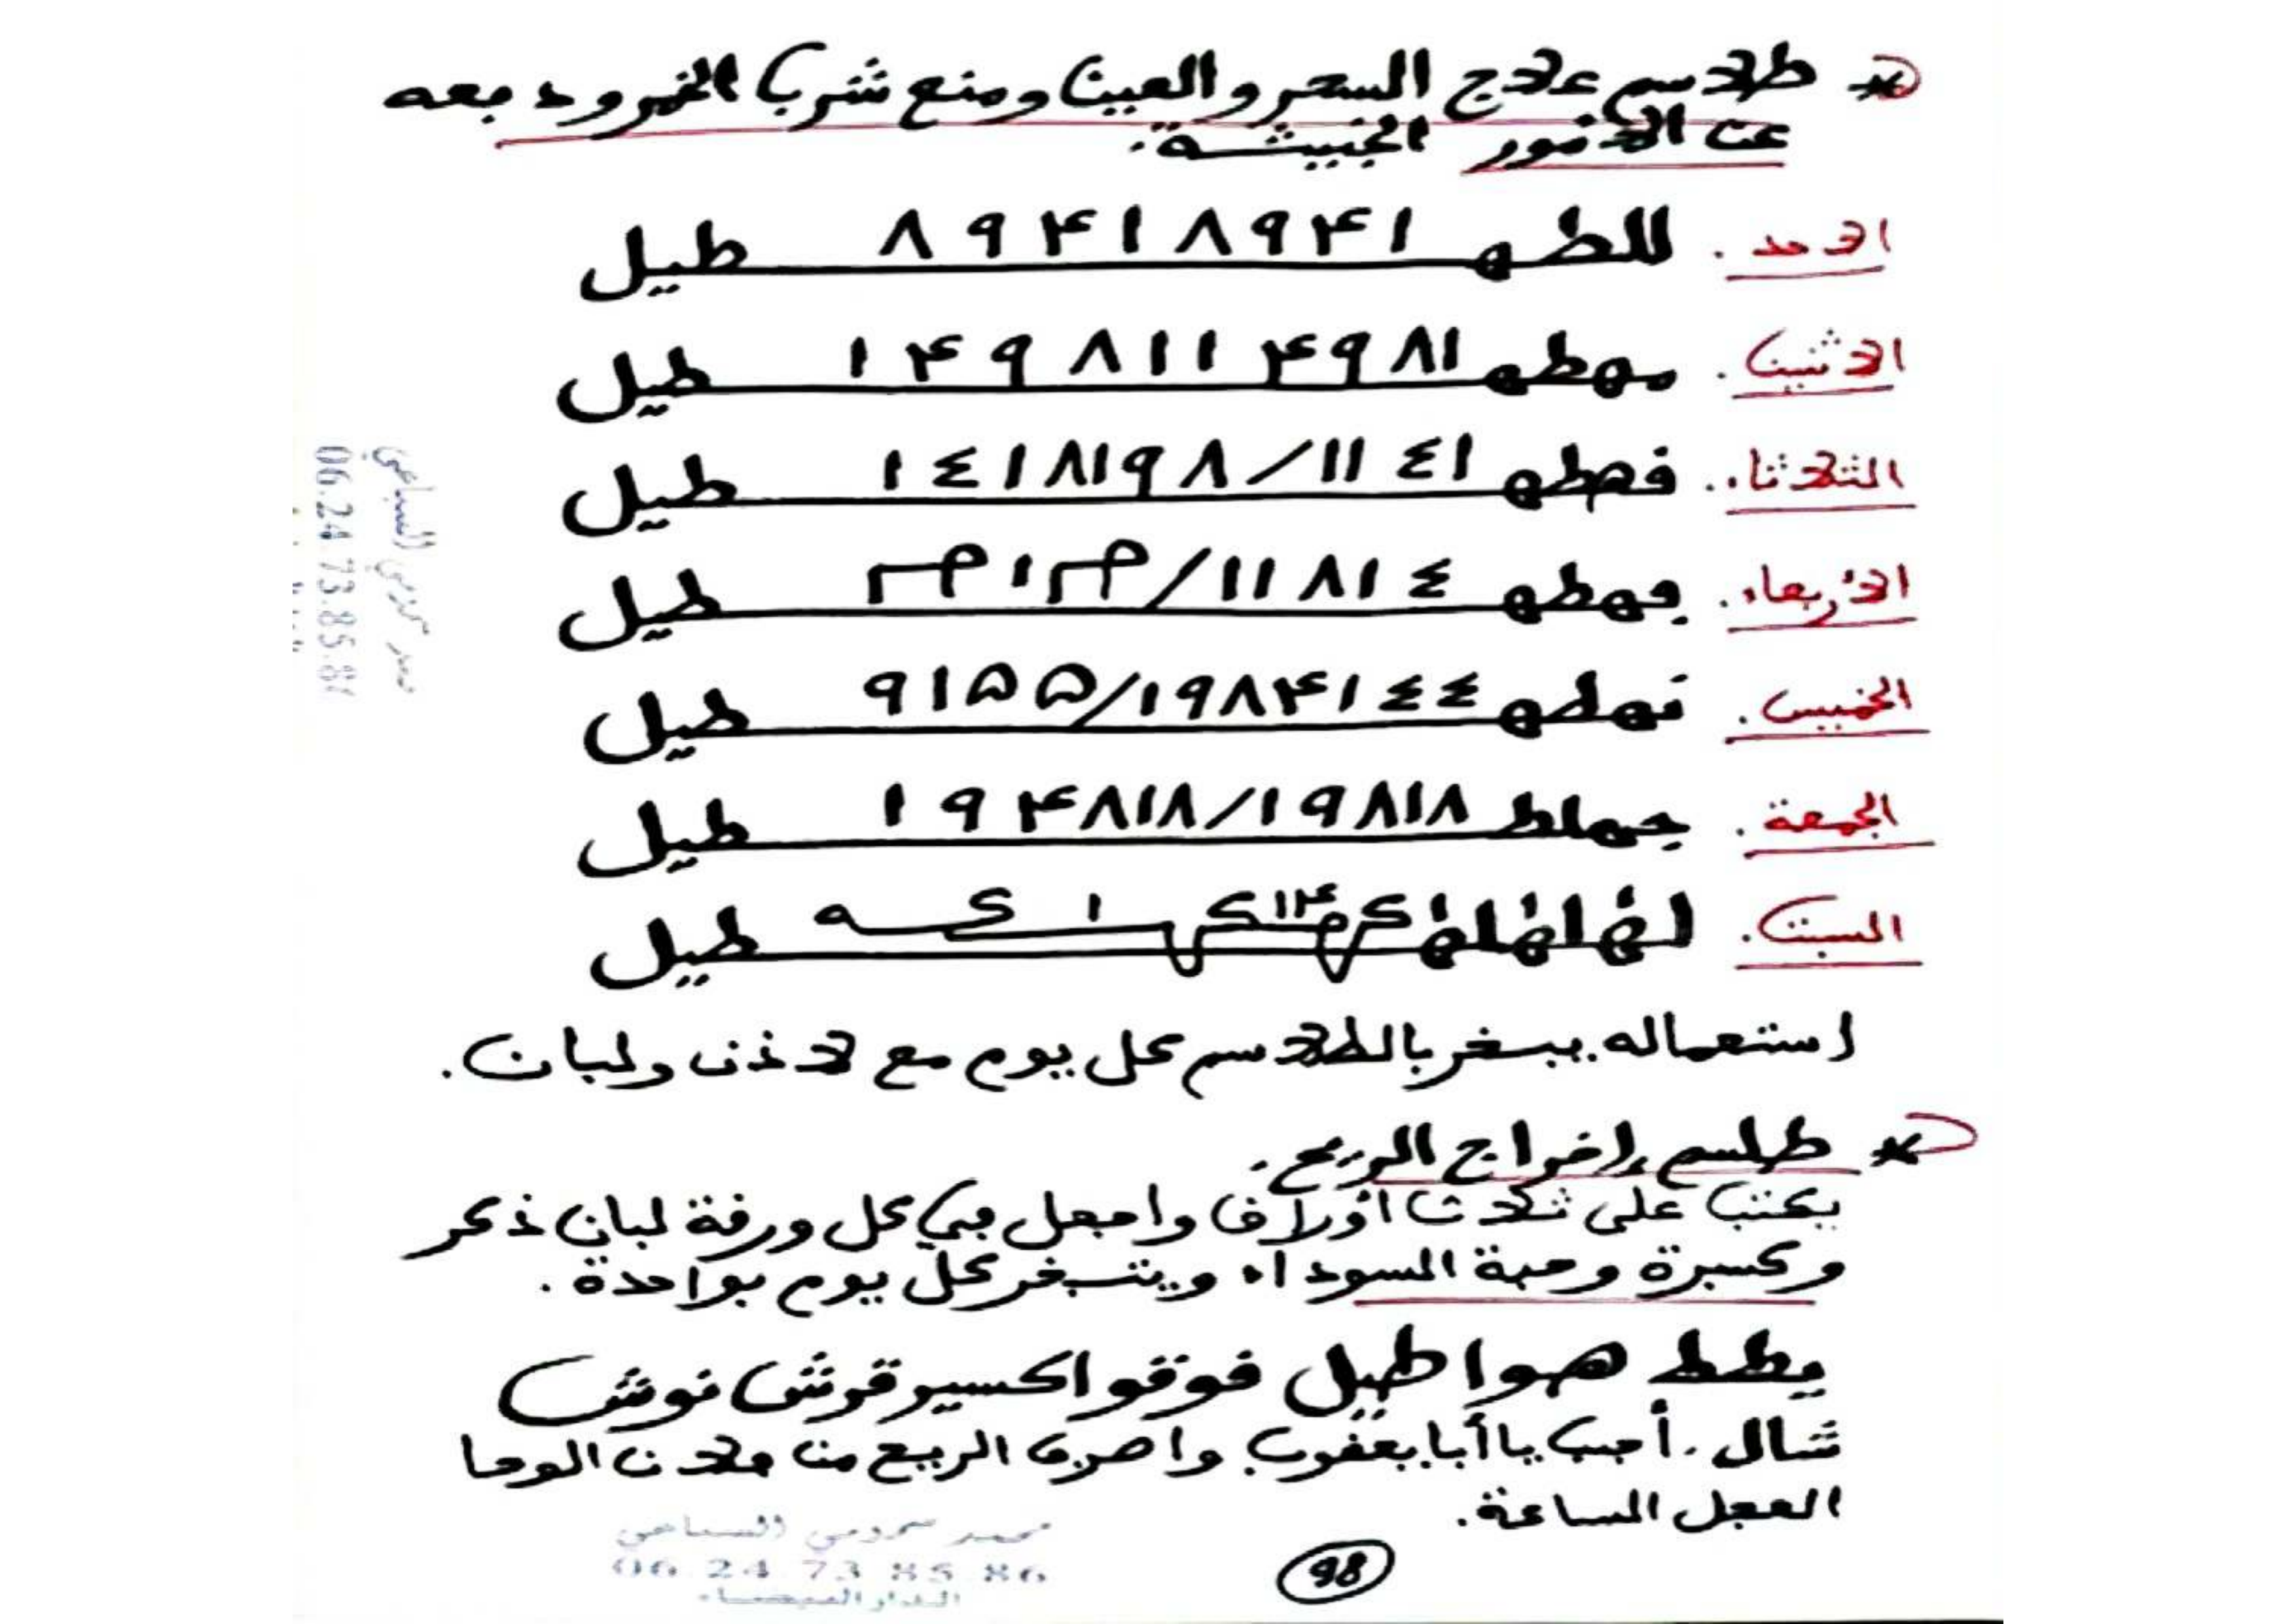 * طلاسم علاج السحر والعين ومنع شرب الخمر ودبعه
عن الأمور الخبيثة.
الاحد. للطهـ ٨٩۴١٨٩۴١ طيل
الاثنين. مهطهـ ١۴٩٨١١۴٩٨١ طيل
الثلاثاء. فهطهـ ١٤١٨١٩٨/١١٤١ طيل
الأربعاء. فهطهـ ١١٨١٤ طيل
الخميس. نهطهـ ٩١۵۵/١٩٨۴١٤٤ طيل
الجمعة. جهلط ١٩۴٨١٨/١٩٨١٨ طيل
السبت. طيل
استعماله. يبخر بالطلاسم كل يوم مع لاذن ولبان.
* طلسم إخراج الريح.
يكتب على ثلاث أوراق واجعل في كل ورقة لبان ذكر
وكسبرة وحبة السوداء ويتبخر كل يوم بواحدة.
يطط هوا طيل فوقو اكسير قرش نوش
شال. أجب يا أبا يعقوب واصرف الريح من فلان الوحا
العجل الساعة.
06 24 73 85 86
الدار البيضاء
98